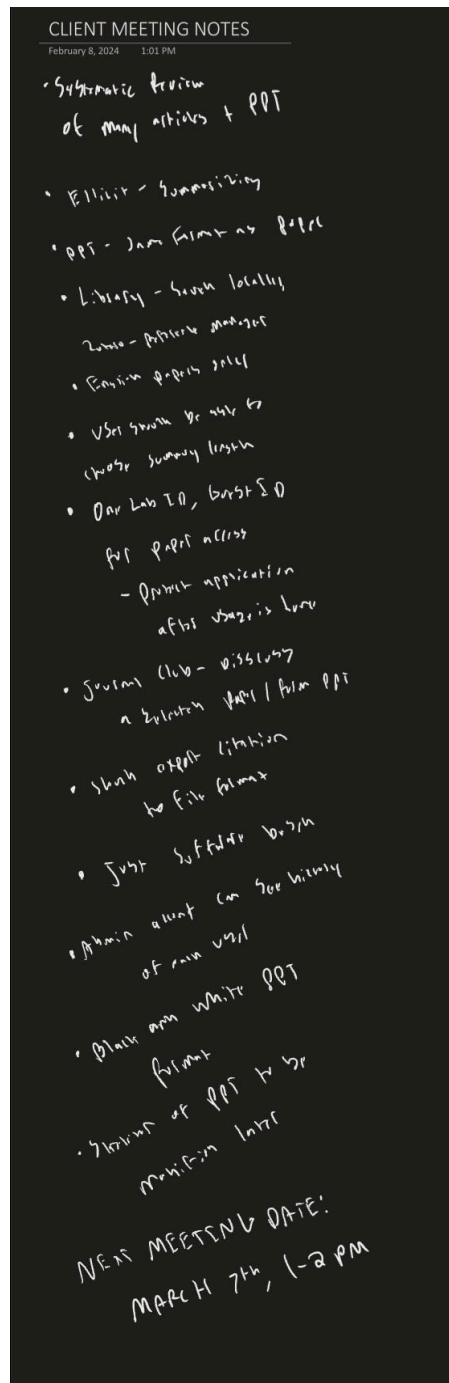 CLIENT MEETING NOTES
February 8, 2024 1:01 PM
• Systematic Review
of many articles + PPT
• Ellicit - Summarizing
• PPT - Same format as paper
• Library - Saved locally
- reference manager
• English papers only
• User should be able to
choose summary length
• One Lab ID, Guest ID
for paper access
- Protect application
after usage is done
• Journal Club - Discuss
a selected paper / from PPT
• Should export citation
to file format
• Just software design
• Admin account can see history
of each user
• Black and white PPT
format
• of PPT to be
modified later
NEXT MEETING DATE:
MARCH 7th, 1-2 PM